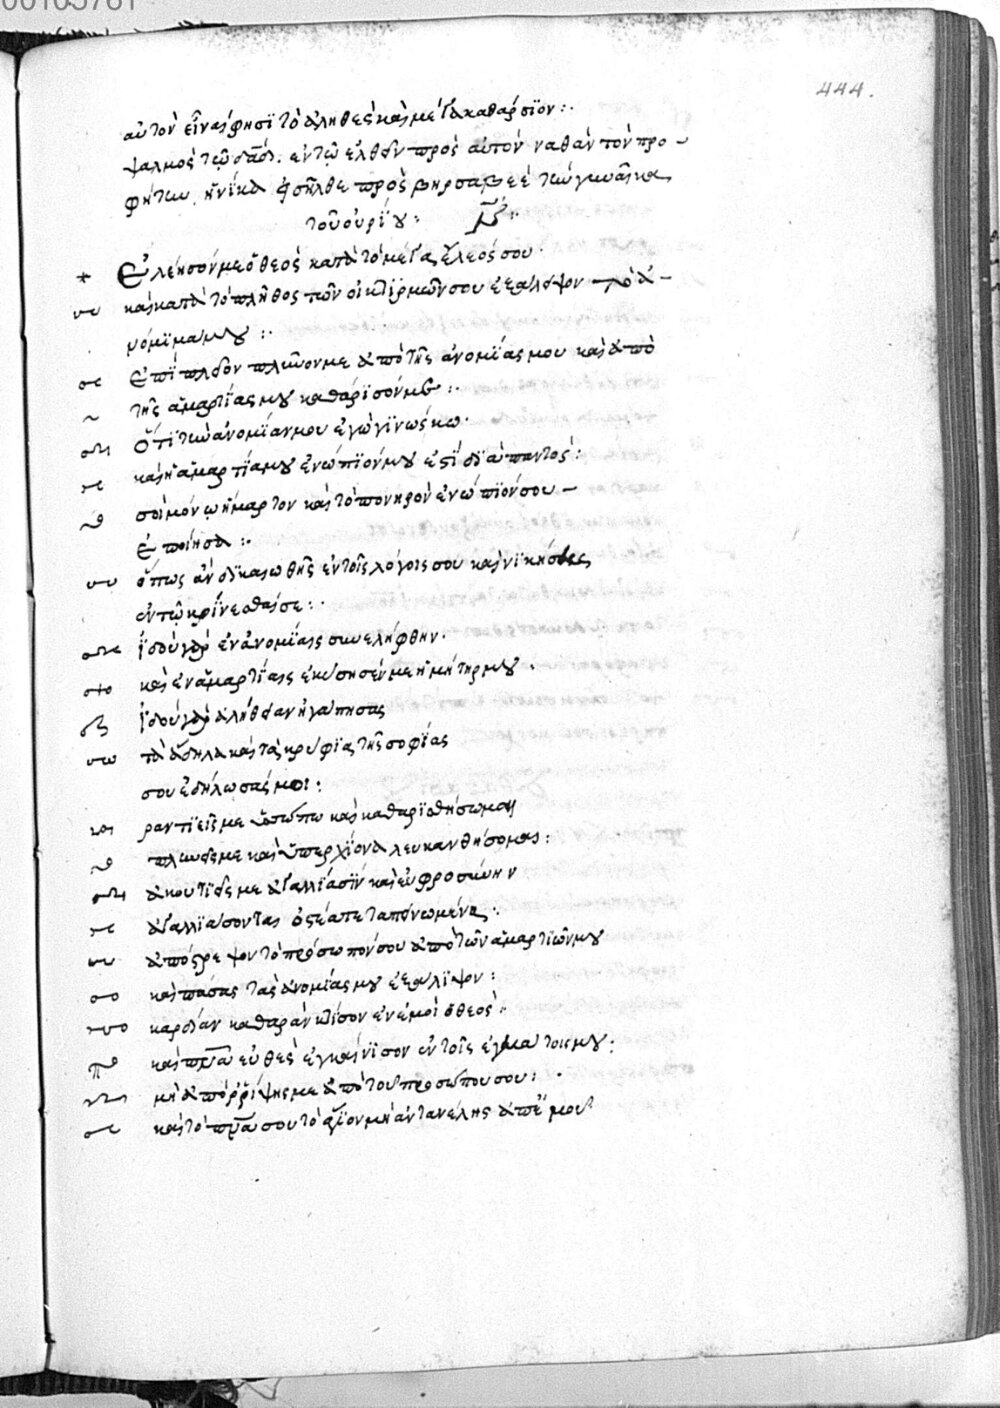 00103781
444.
αὐτὸν εἶναι φησὶ τὸ ἀληθὲς καὶ μέγα καθάρσϊον :·
ψαλμὸς τῷ δᾱδ. ἐν τῷ ἐλθεῖν πρὸς αὐτὸν ναθὰν τὸν προ-
φήτην, ἡνίκα εἰσῆλθε πρὸς βηρσαβεὲ τὴν γυναῖκα
τοῦ οὐρίου :
Ἐλέησόν με ὁ θεὸς κατὰ τὸ μέγα ἔλεός σου·
καὶ κατὰ τὸ πλῆθος τῶν οἰκτιρμῶν σου ἐξάλειψον τὸ ἀ-
νόμϊμα μου :·
Ἐπὶ πλεῖον πλῦνον με ἀπὸ τῆς ἀνομίας μου καὶ ἀπὸ
τῆς ἁμαρτίας μου καθάρϊσόν με :·
Ὅτι τὴν ἀνομίαν μου ἐγὼ γϊνώσκω·
καὶ ἡ ἁμαρτία μου ἐνώπϊόν μου ἐστὶ δϊαπαντός :
σοὶ μόνῳ ἥμαρτον καὶ τὸ πονηρὸν ἐνώπϊόν σου –
ἐποίησα :·
ὅπως ἂν δϊκαιωθῆς ἐν τοῖς λόγοις σου καὶ νϊκήσεις
ἐν τῷ κρίνεσθαί σε :·
Ἰδοὺ γὰρ ἐν ἀνομίαις συνελήφθην·
καὶ ἐν ἁμαρτίαις ἐκίσησέν με ἡ μήτηρ μου·
Ἰδοὺ γὰρ ἀλήθειαν ἠγάπησας
τὰ ἄδηλα καὶ τὰ κρύφϊα τῆς σοφίας
σου ἐδήλωσάς μοι :
ραντϊεῖς με ὑσώπω καὶ καθαρϊσθήσωμαι
πλυνεῖς με καὶ ὑπὲρ χϊόνα λευκανθήσομαι :
ἀκουτϊεῖς με ἀγαλλίασϊν καὶ εὐφροσύνην
ἀγαλλϊάσονται ὀστέα πεταπεινωμένα :
ἀπόστρεψον τὸ πρόσωπόν σου ἀπὸ τῶν ἁμαρτϊῶν μου
καὶ πάσας τὰς ἀνομίας μου ἐξάλϊψον :
καρδίαν καθαρὰν κτίσον ἐν ἐμοὶ ὁ θεὸς :
καὶ πνᾱ εὐθὲς ἐγκαίνϊσον ἐν τοῖς ἐγκάτοις μου :
μὴ ἀπορρίψης με ἀπὸ τοῦ προσώπου σου :
καὶ τὸ πνᾱ σου τὸ ἅγϊον μὴ ἀντανέλης ἀπ' ἐμοῦ